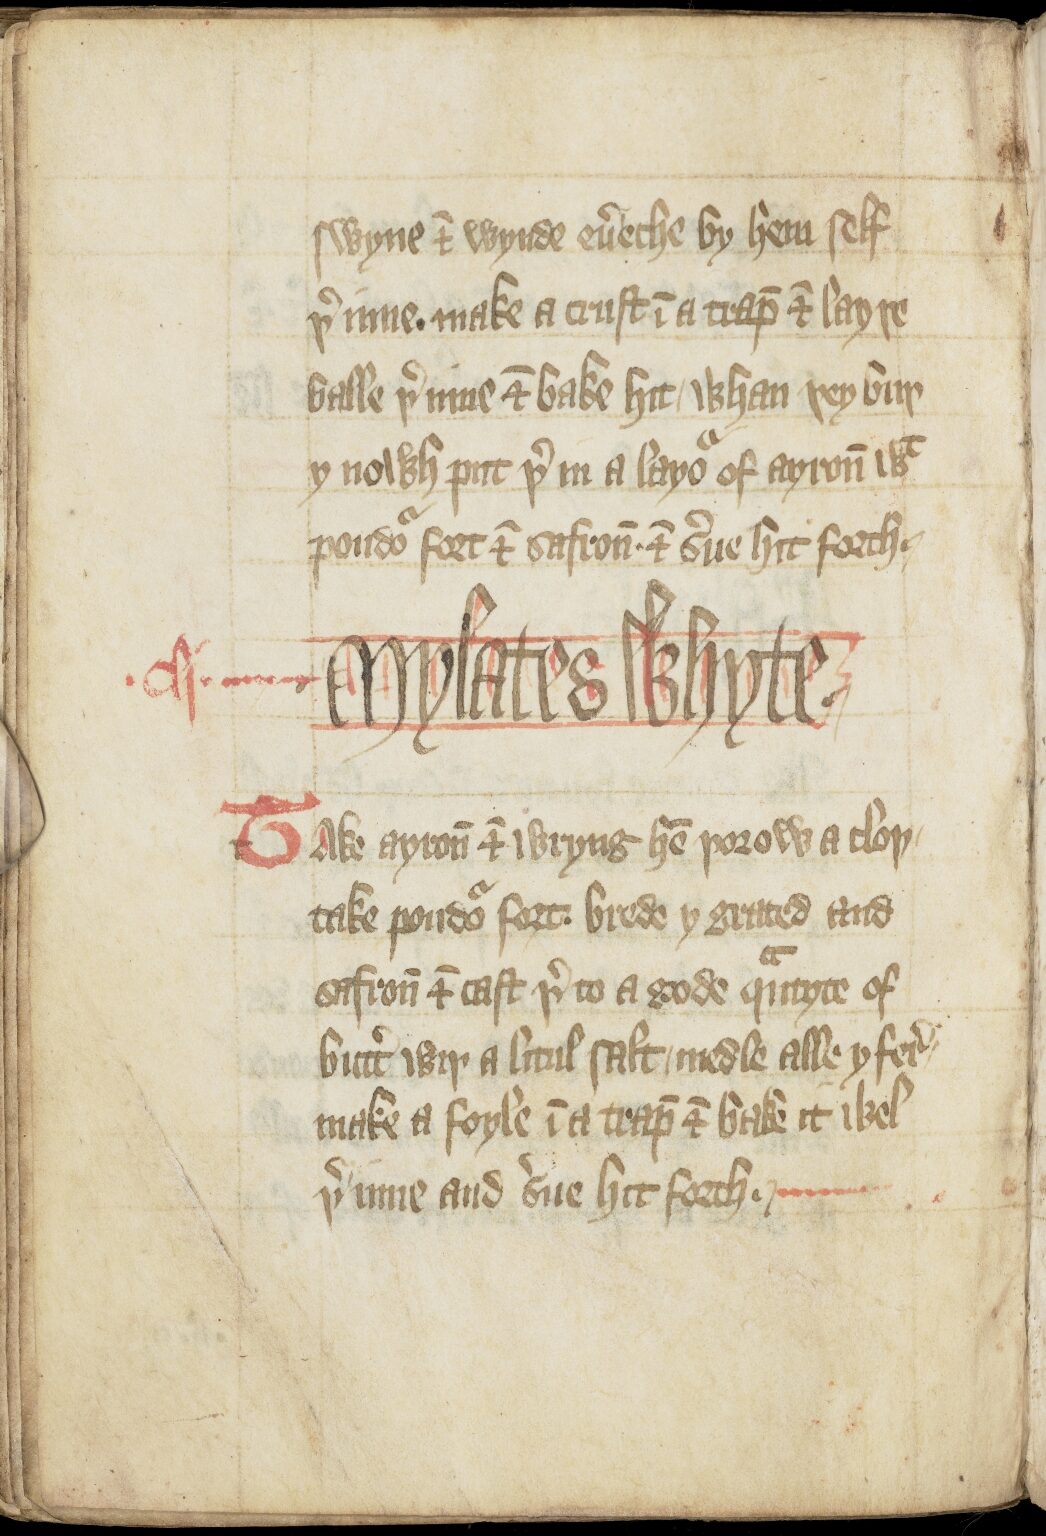 swyne ⁊ wynde eu̾eche by hem self
þ̾ inne. make a crust ī a trap̄ ⁊ lay þe
balle þ̾ inne ⁊ bake hit / whan þey buþ
y nowh put þ̾ in a layoᵃ of ayron̄ wᵗ
poudoᵃ fort ⁊ safron̄ · ⁊ s̾ue hit forth·
Mylates Whyte.
TAke ayron̄ ⁊ wryng hē þorow a cloþ
take poudoᵃ fort. brede y grated and
safron̄ ⁊ cast þ̾ to a gode qᵃntyte of
butt̾ wiþ a litul salt / medle alle y fer̾
make a foyle ī a trap̄ ⁊ bake it wel
þ̾ inne and s̾ue hit forth.